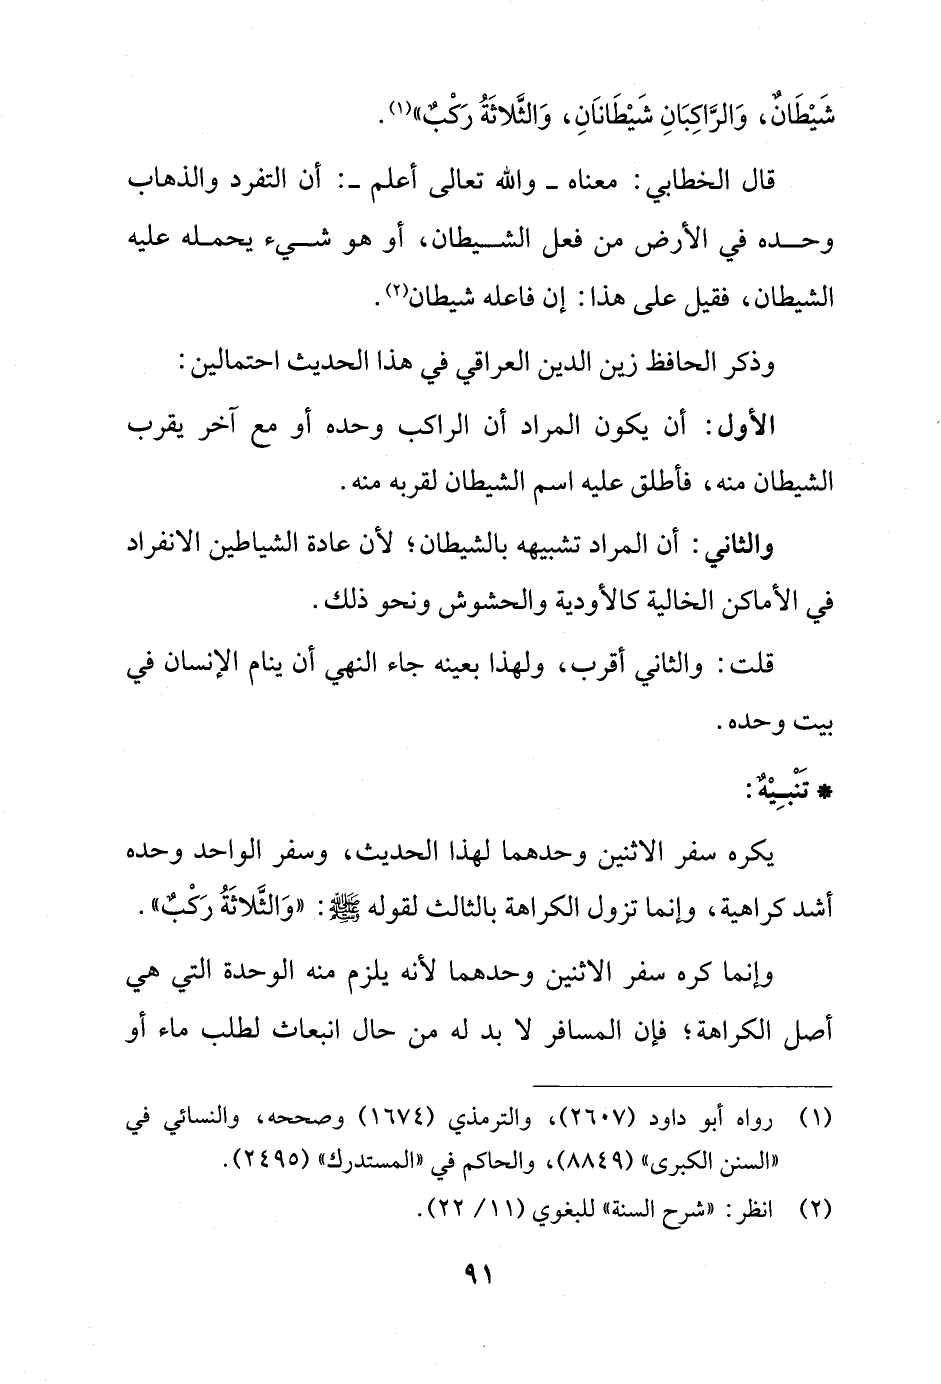 شَيْطَانٌ، وَالرَّاكِبَانِ شَيْطَانَانِ، وَالثَّلاثَةُ رَكْبٌ»(١).
قال الخطابي: معناه ـ والله تعالى أعلم ـ: أن التفرد والذهاب
وحـــده في الأرض من فعل الشـــيطان، أو هو شـــيء يحمـله عليه
الشيطان، فقيل على هذا: إن فاعله شيطان(٢).
وذكر الحافظ زين الدين العراقي في هذا الحديث احتمالين:
الأول: أن يكون المراد أن الراكب وحده أو مع آخر يقرب
الشيطان منه، فأطلق عليه اسم الشيطان لقربه منه.
والثاني: أن المراد تشبيهه بالشيطان؛ لأن عادة الشياطين الانفراد
في الأماكن الخالية كالأودية والحشوش ونحو ذلك.
قلت: والثاني أقرب، ولهذا بعينه جاء النهي أن ينام الإنسان في
بيت وحده.
* تَنْبِيْهٌ:
يكره سفر الاثنين وحدهما لهذا الحديث، وسفر الواحد وحده
أشد كراهية، وإنما تزول الكراهة بالثالث لقوله ﷺ: «وَالثَّلاثَةُ رَكْبٌ».
وإنما كره سفر الاثنين وحدهما لأنه يلزم منه الوحدة التي هي
أصل الكراهة؛ فإن المسافر لا بد له من حال انبعاث لطلب ماء أو
(١) رواه أبو داود (٢٦٠٧)، والترمذي (١٦٧٤) وصححه، والنسائي في
«السنن الكبرى» (٨٨٤٩)، والحاكم في «المستدرك» (٢٤٩٥).
(٢) انظر: «شرح السنة» للبغوي (١١/ ٢٢).
٩١